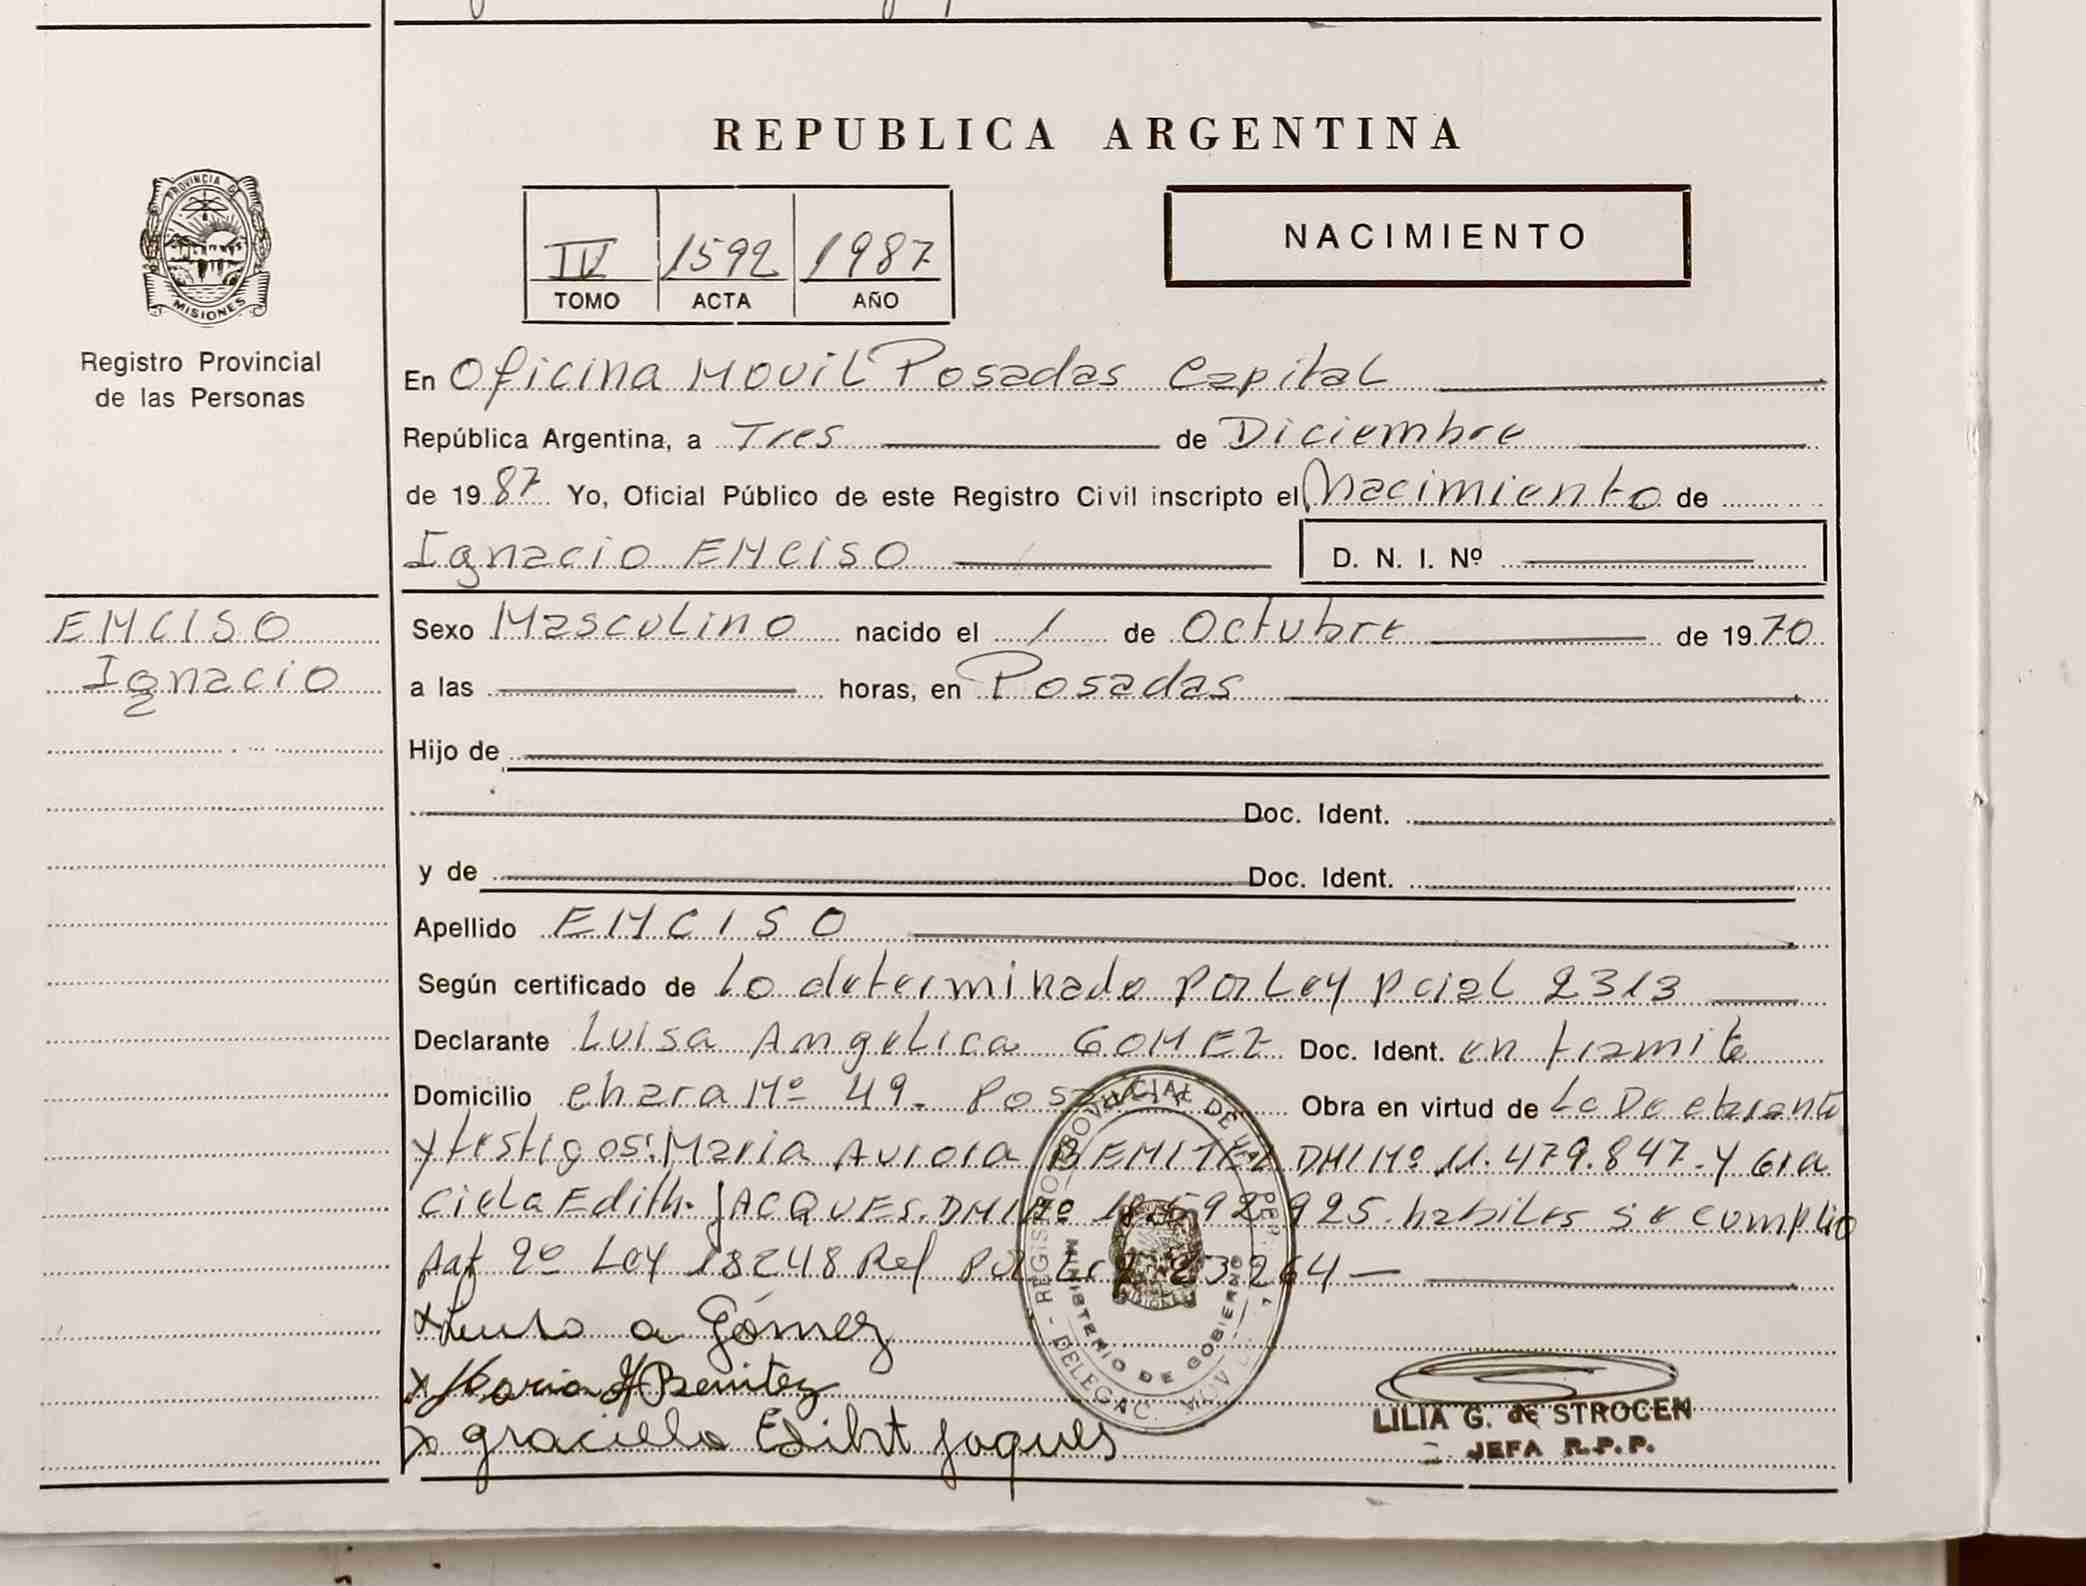 REPUBLICA ARGENTINA
IV 1592 1987
TOMO ACTA AÑO
NACIMIENTO
PROVINCIA DE
MISIONES
Registro Provincial
de las Personas
En Oficina Movil Posadas Capital
República Argentina, a Tres de Diciembre
de 1987 Yo, Oficial Público de este Registro Civil inscripto el Nacimiento de
Ignacio ENCISO D. N. I. Nº
ENCISO
Ignacio
Sexo Masculino nacido el 1 de Octubre de 1970
a las horas, en Posadas
Hijo de
Doc. Ident.
y de Doc. Ident.
Apellido ENCISO
Según certificado de Lo determinado por Ley pcial 2313
Declarante Luisa Angelica GOMEZ Doc. Ident. en tramite
Domicilio chacra Nº 49. Obra en virtud de La Declarante
y testigos: Maria Aurora BENITEZ DNI Nº 11.479.847. y Gra
ciela Edith. JACQUES. DNI Nº 925. habiles se cumplio
Art 2º Ley 18248 Ref
REGISTRO PROVINCIAL DE LAS PERS.
MINISTERIO DE GOBIERNO
DELEGAC. MOVIL
a Gómez
Maria A Benitez
graciela Ediht jaques
LILIA G. de STROCEN
JEFA R.P.P.